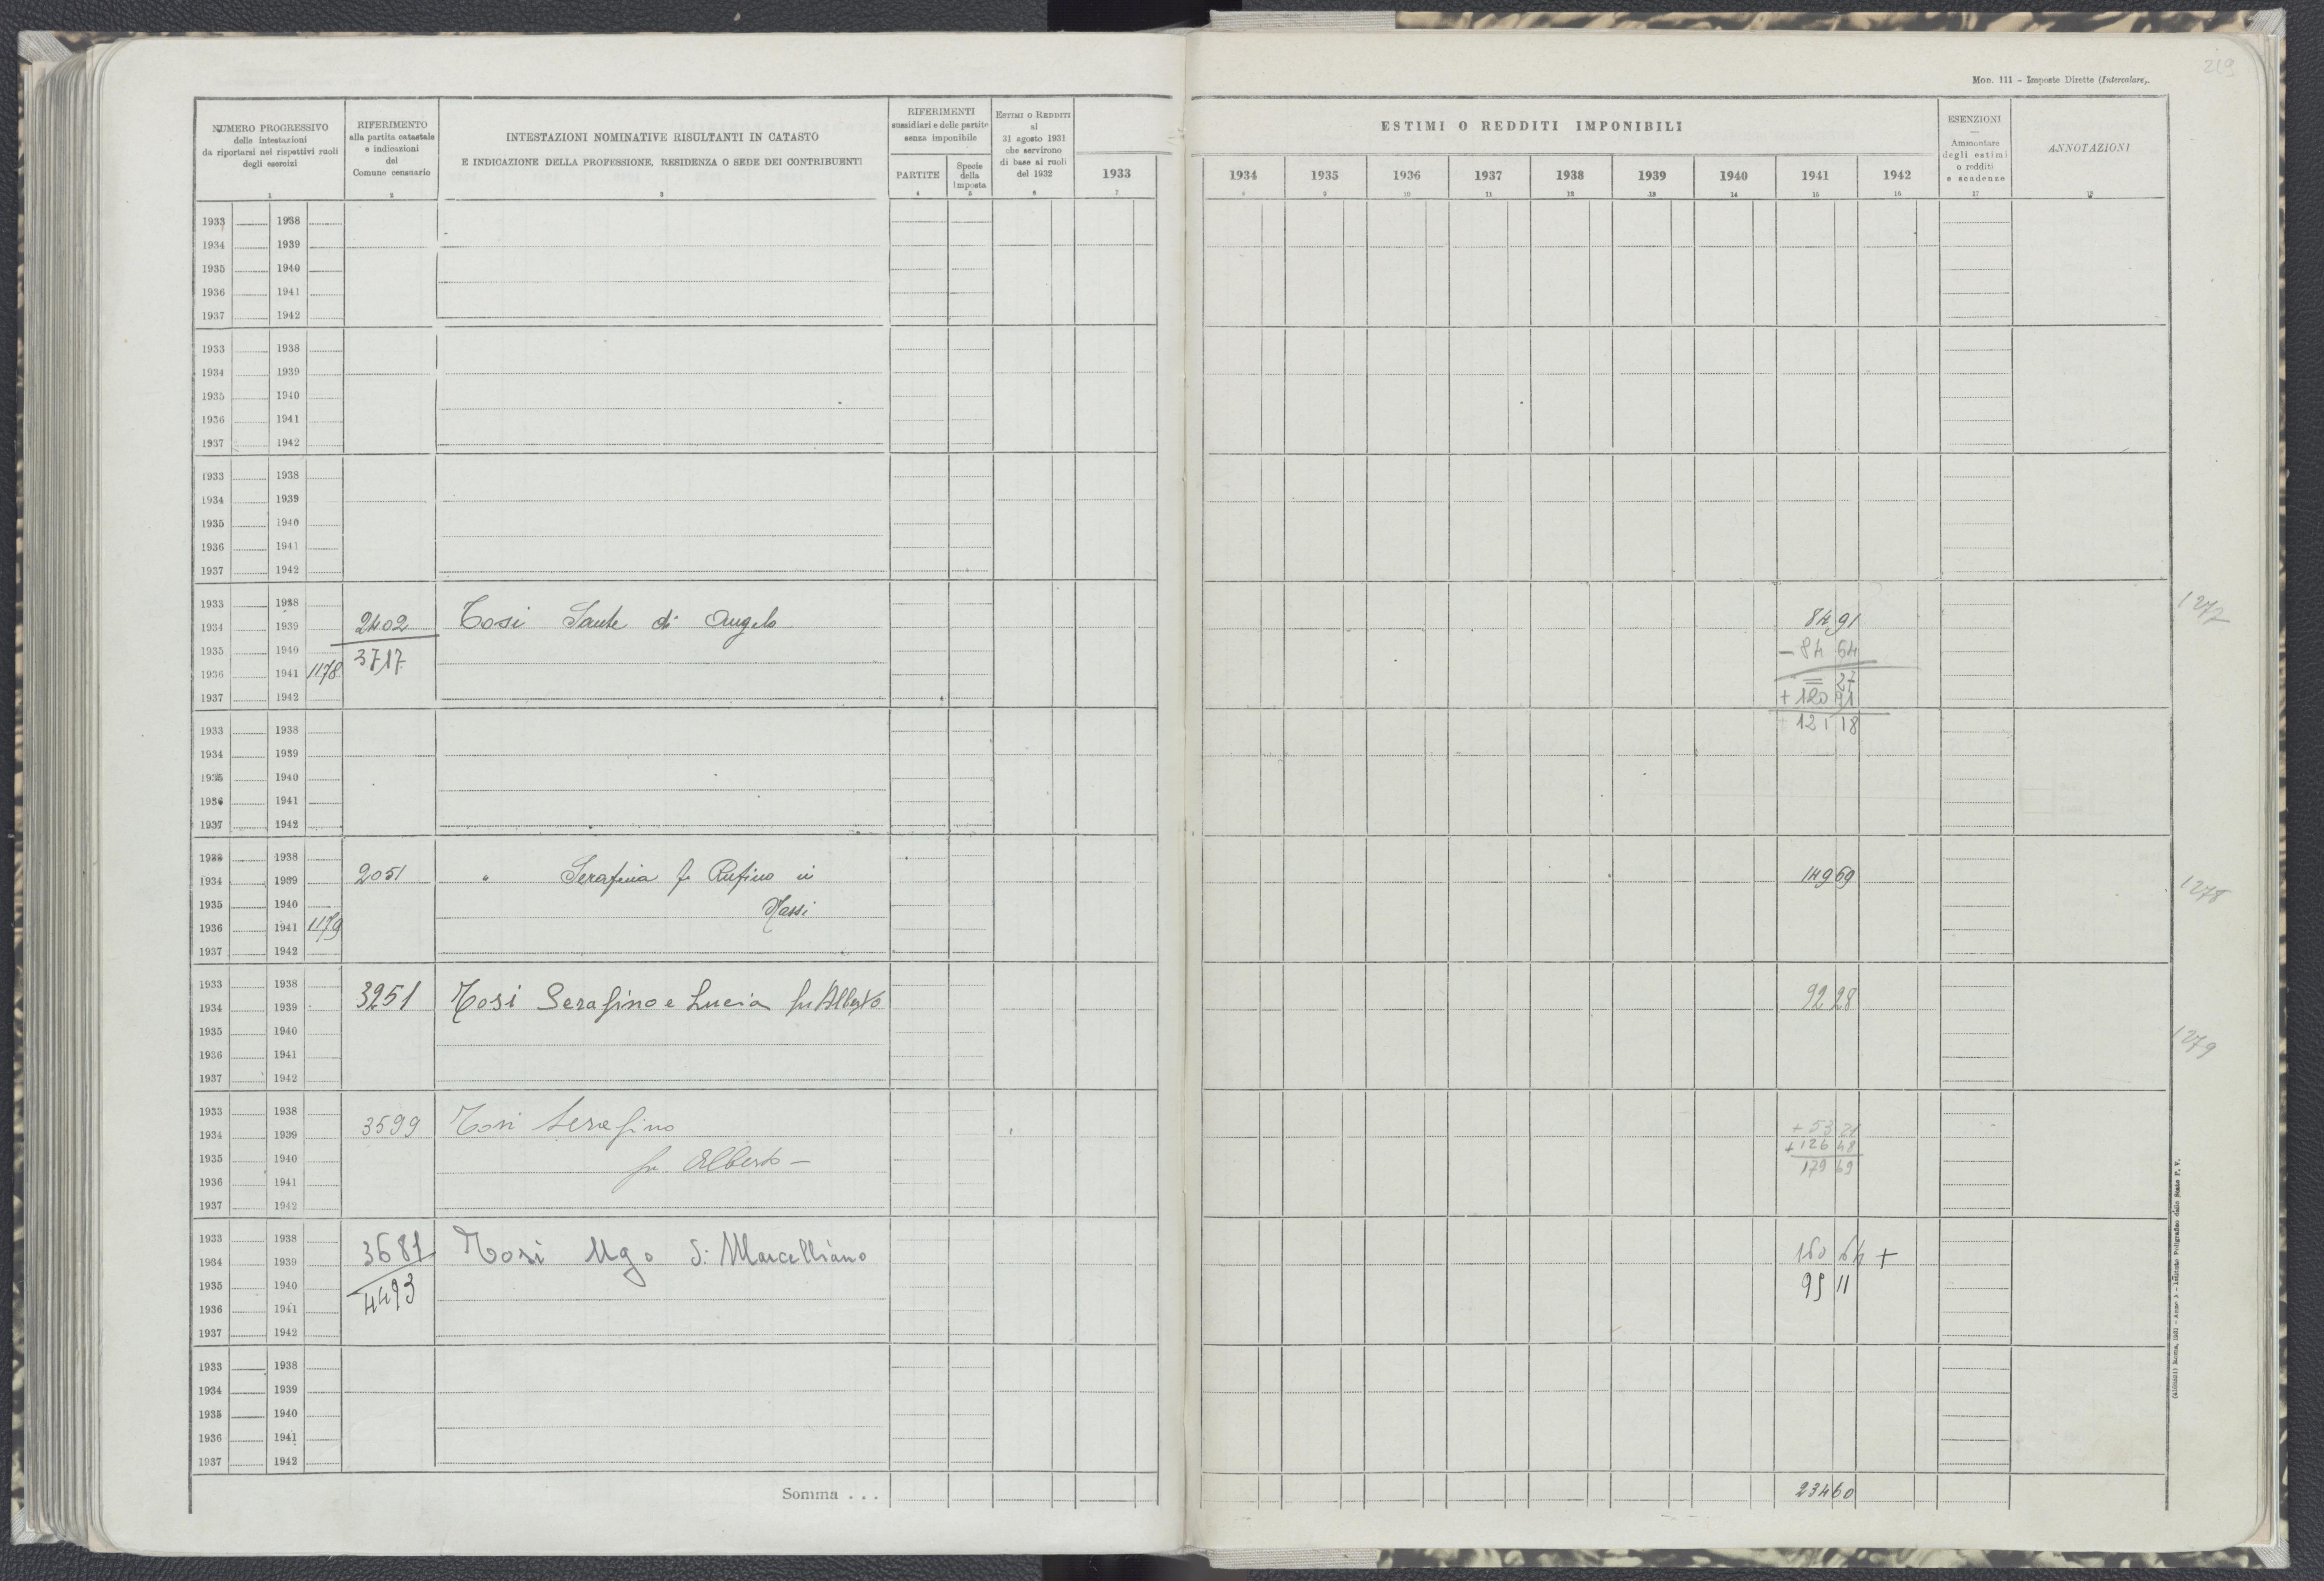 219
Mod. 111 - Imposte Dirette (Intercalare).
NUMERO PROGRESSIVO
delle intestazioni
da riportarsi nei rispettivi ruoli
degli esercizi
1
RIFERIMENTO
alla partita catastale
e indicazioni
del
Comune censuario
2
INTESTAZIONI NOMINATIVE RISULTANTI IN CATASTO
E INDICAZIONE DELLA PROFESSIONE, RESIDENZA O SEDE DEI CONTRIBUENTI
3
RIFERIMENTI
sussidiari e delle partite
senza imponibile
PARTITE
4
Specie
della
imposta
5
ESTIMI O REDDITI
al
31 agosto 1931
che servirono
di base ai ruoli
del 1932
6
1933
7
ESTIMI O REDDITI IMPONIBILI
1934 1935 1936 1937 1938 1939 1940 1941 1942
8 9 10 11 12 13 14 15 16
ESENZIONI
—
Ammontare
degli estimi
o redditi
e scadenze
17
ANNOTAZIONI
18
1933 1938
1934 1939
1935 1940
1936 1941
1937 1942
1933 1938
1934 1939
1935 1940
1936 1941
1937 1942
1933 1938
1934 1939
1935 1940
1936 1941
1937 1942
1933 1938 1272
1934 1939 2402 Tosi Sante di Angelo 84 91
1935 1940 3717 - 84 64
1936 1941 1178 = 27
1937 1942 + 120 91
121 18
1933 1938
1934 1939
1935 1940
1936 1941
1937 1942
1933 1938
1934 1939 2051 " Serafina fu Rufino in 149 69 1278
1935 1940 Massi
1936 1941 1179
1937 1942
1933 1938
1934 1939 3251 Tosi Serafino e Lucia fu Alberto 92 28
1935 1940 1279
1936 1941
1937 1942
1933 1938
1934 1939 3599 Tosi Serafino + 53 21
1935 1940 fu Alberto - + 126 48
1936 1941 179 69
1937 1942
1933 1938
1934 1939 3681 Tosi Ugo di Marcelliano 160 64 +
1935 1940 4493 95 11
1936 1941
1937 1942
1933 1938
1934 1939
1935 1940
1936 1941
1937 1942
Somma . . . 234 60
Roma, 1931 - Anno X - Istituto Poligrafico dello Stato P. V.